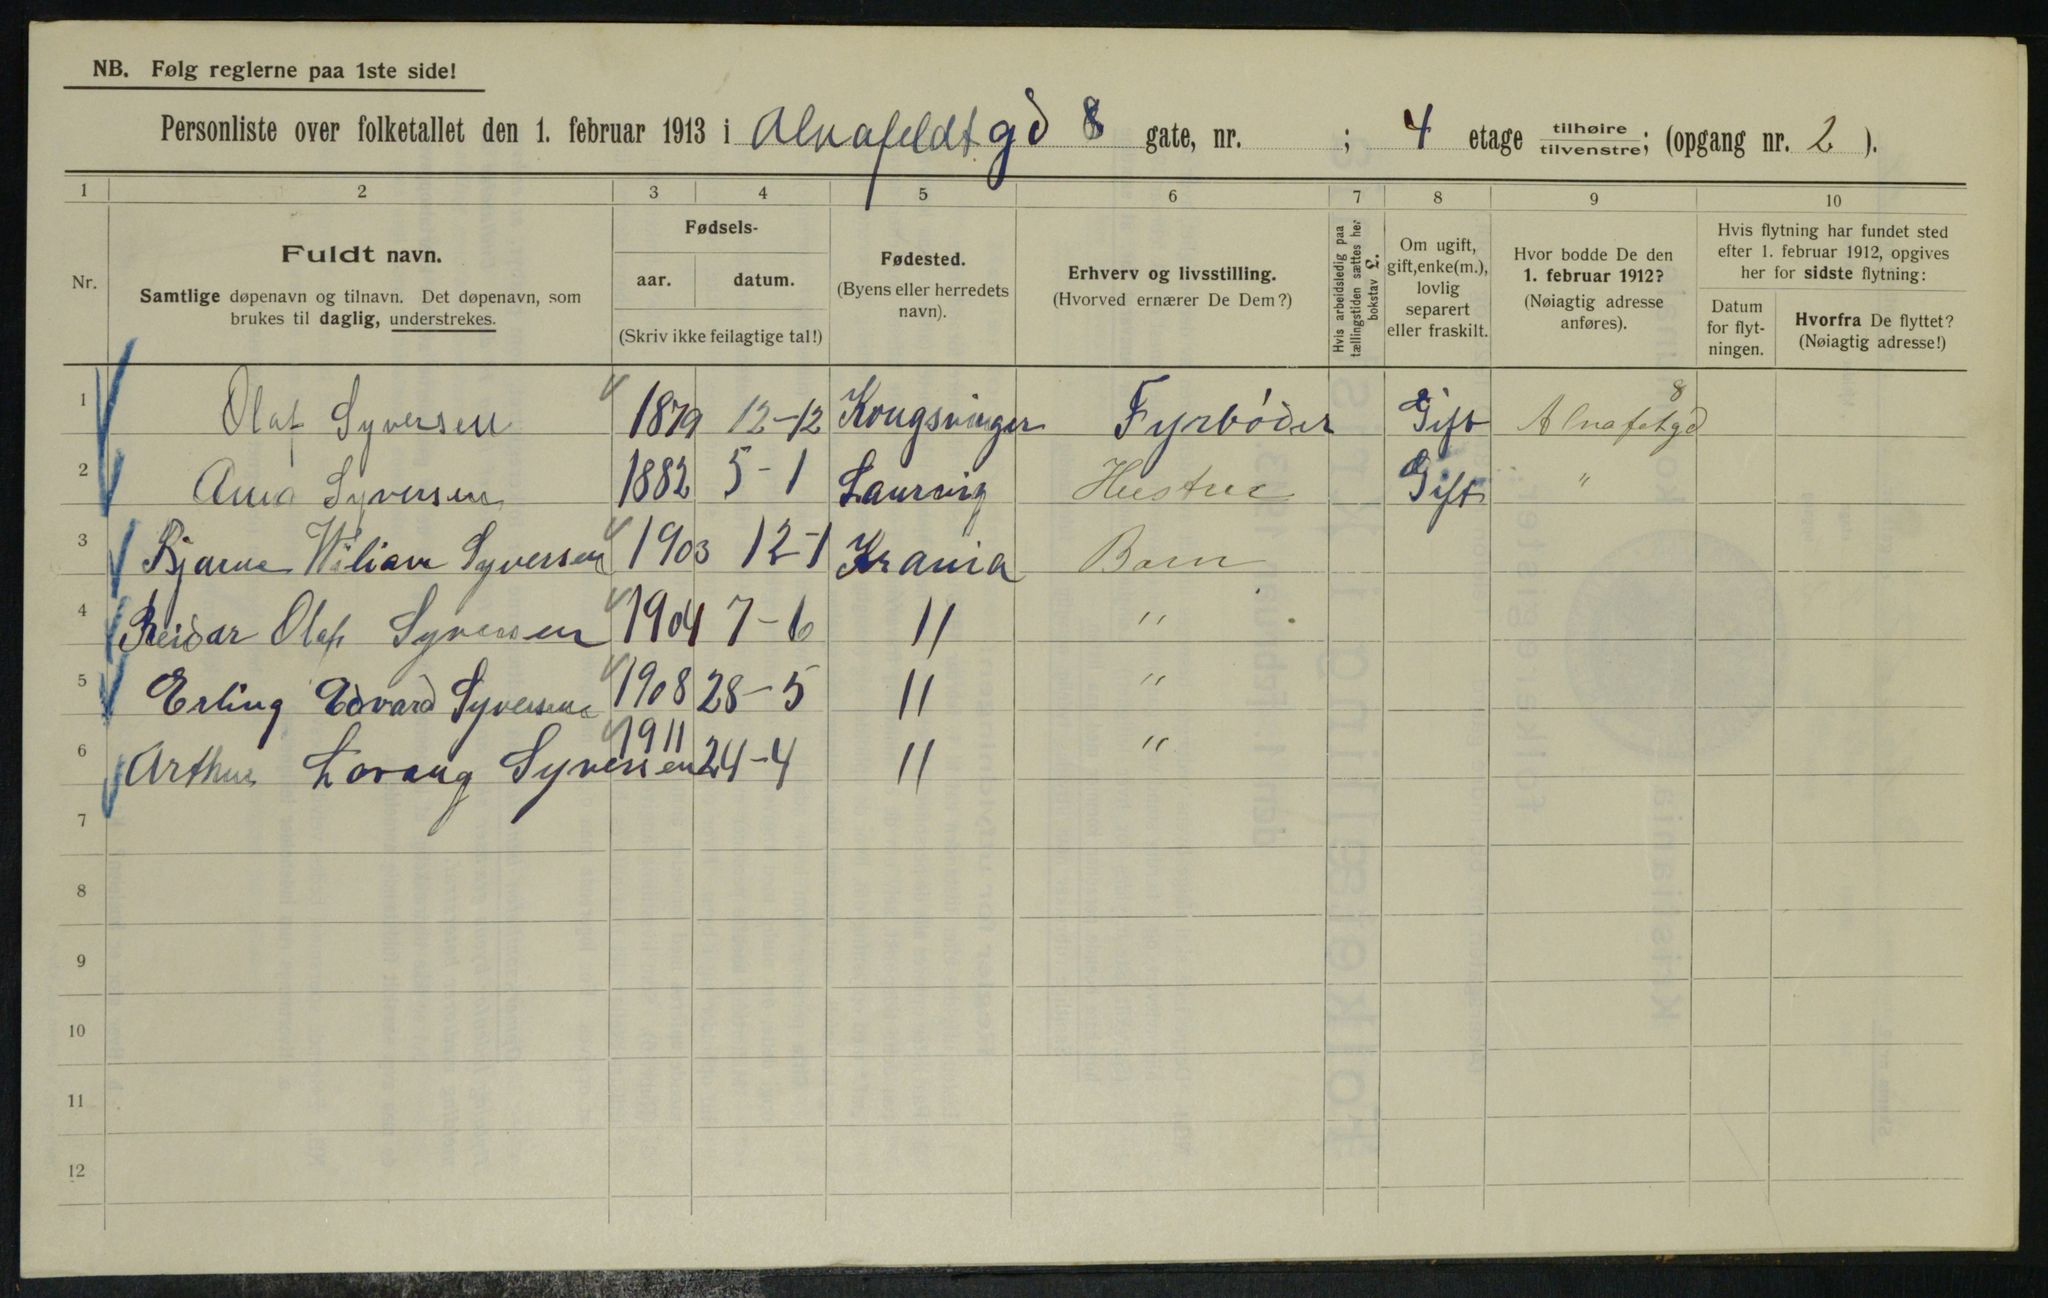 NB. Følg reglerne paa 1ste side!
Personliste over folketallet den 1. februar 1913 i Alnafeldtgd 8 gate, nr. ; 4 etage tilhøire tilvenstre; (opgang nr. 2 ).
1 2 3 4 5 6 7 8 9 10
Nr.
Fuldt navn.
Samtlige døpenavn og tilnavn. Det døpenavn, som
brukes til daglig, understrekes.
Fødsels-
aar. datum.
(Skriv ikke feilagtige tal!)
Fødested.
(Byens eller herredets
navn).
Erhverv og livsstilling.
(Hvorved ernærer De Dem?)
Hvis arbeidsledig paa
tællingstiden sættes her
bokstav L.
Om ugift,
gift, enke(m.),
lovlig
separert
eller fraskilt.
Hvor bodde De den
1. februar 1912?
(Nøiagtig adresse
anføres).
Hvis flytning har fundet sted
efter 1. februar 1912, opgives
her for sidste flytning:
Datum
for flyt-
ningen.
Hvorfra De flyttet?
(Nøiagtig adresse!)
1 Olaf Syversen 1879 12-12 Kongsvinger Fyrbøder Gift Alnafetgd 8
2 Anna Syversen 1882 5-1 Laurvig Hustru Gift "
3 Bjarne Wiliam Syversen 1903 12-1 Krania Barn
4 Reidar Olaf Syversen 1904 7-6 " "
5 Erling Edvard Syversen 1908 28-5 " "
6 Arthur Lorang Syversen 1911 24-4 " "
7
8
9
10
11
12